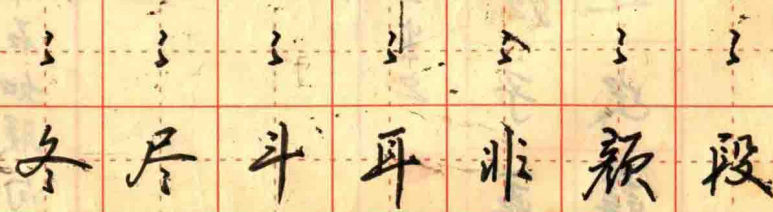 冬尽斗耳非颜段